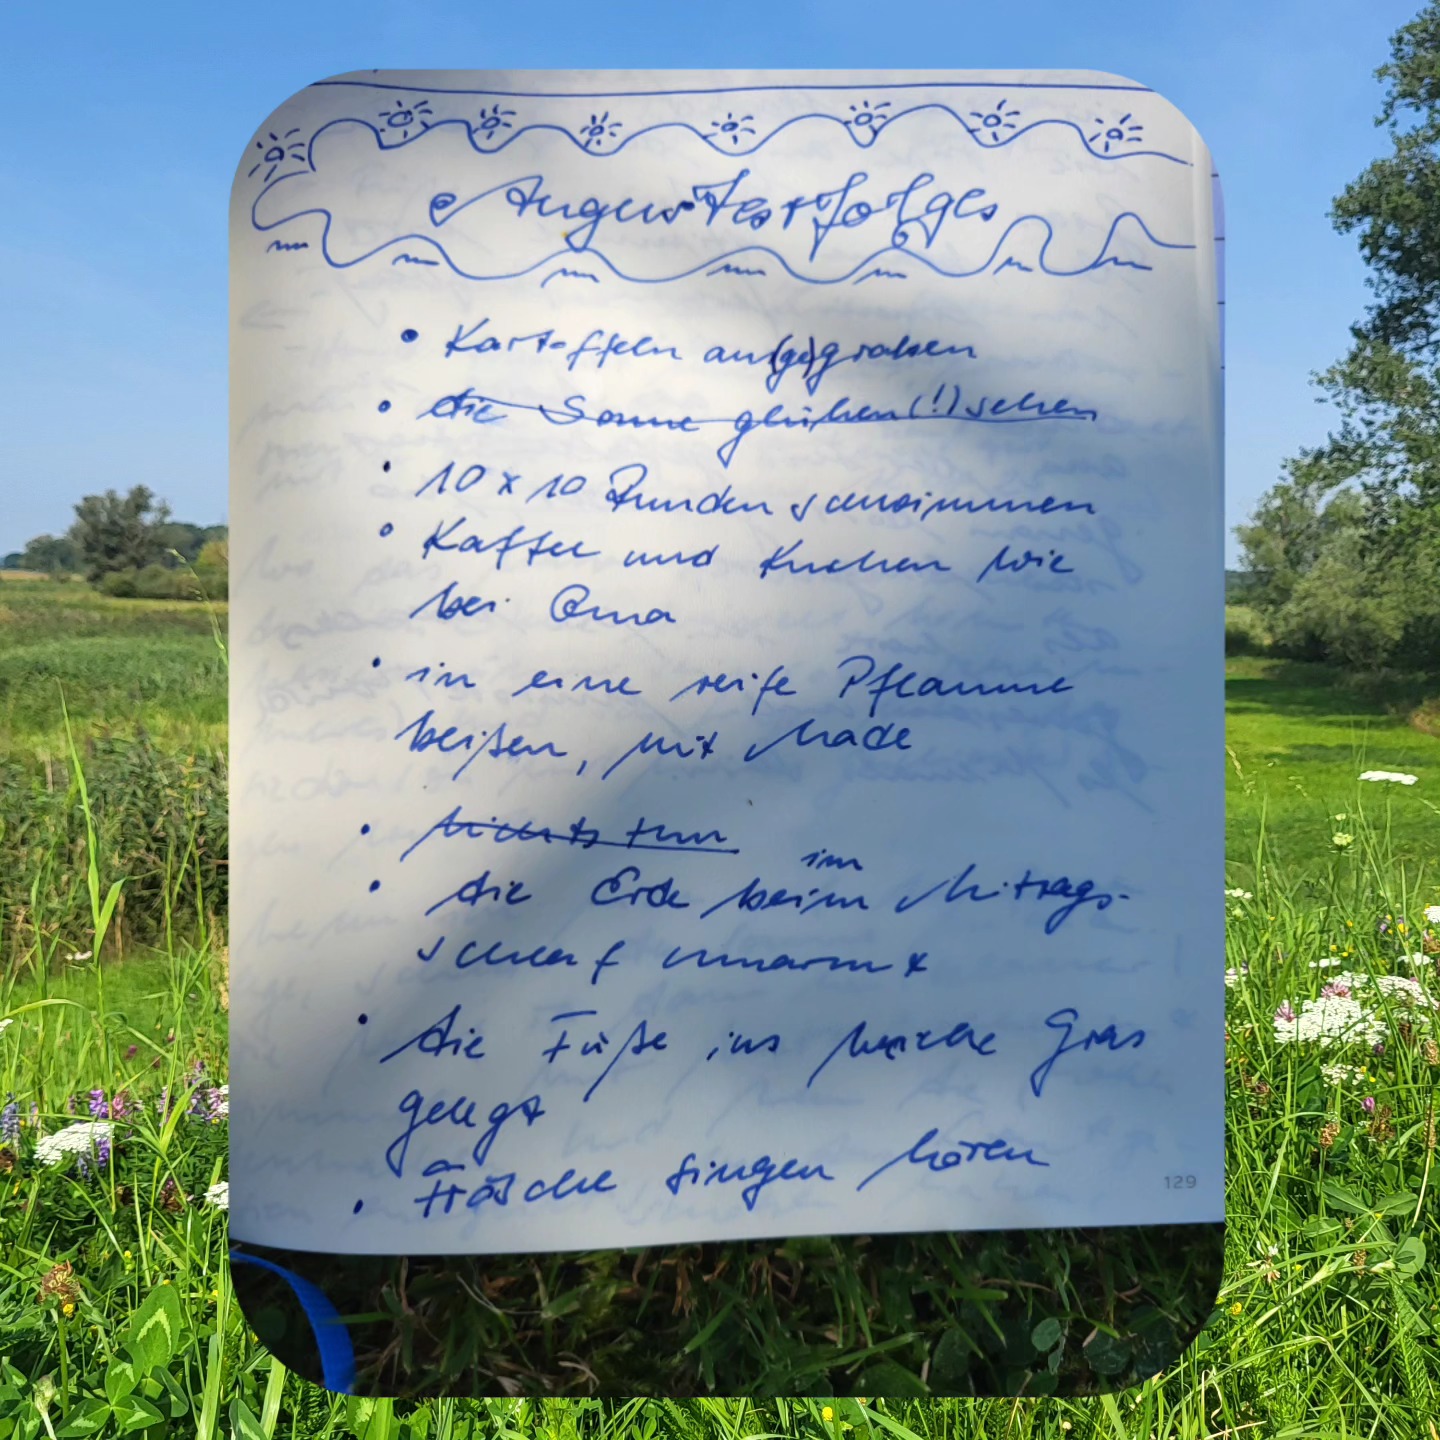 Augusterfolges
• Kartoffeln aus(ge)graben
• die Sonne glühen(!) sehen
• 10 x 10 Runden schwimmen
• Kaffee und Kuchen wie
bei Oma
• in eine reife Pflaume
beißen, mit Made
• Nichts tun
im
• die Erde beim Mittags-
schlaf umarmt
• die Füße ins weiche Gras
gelegt
• Frösche singen hören
129